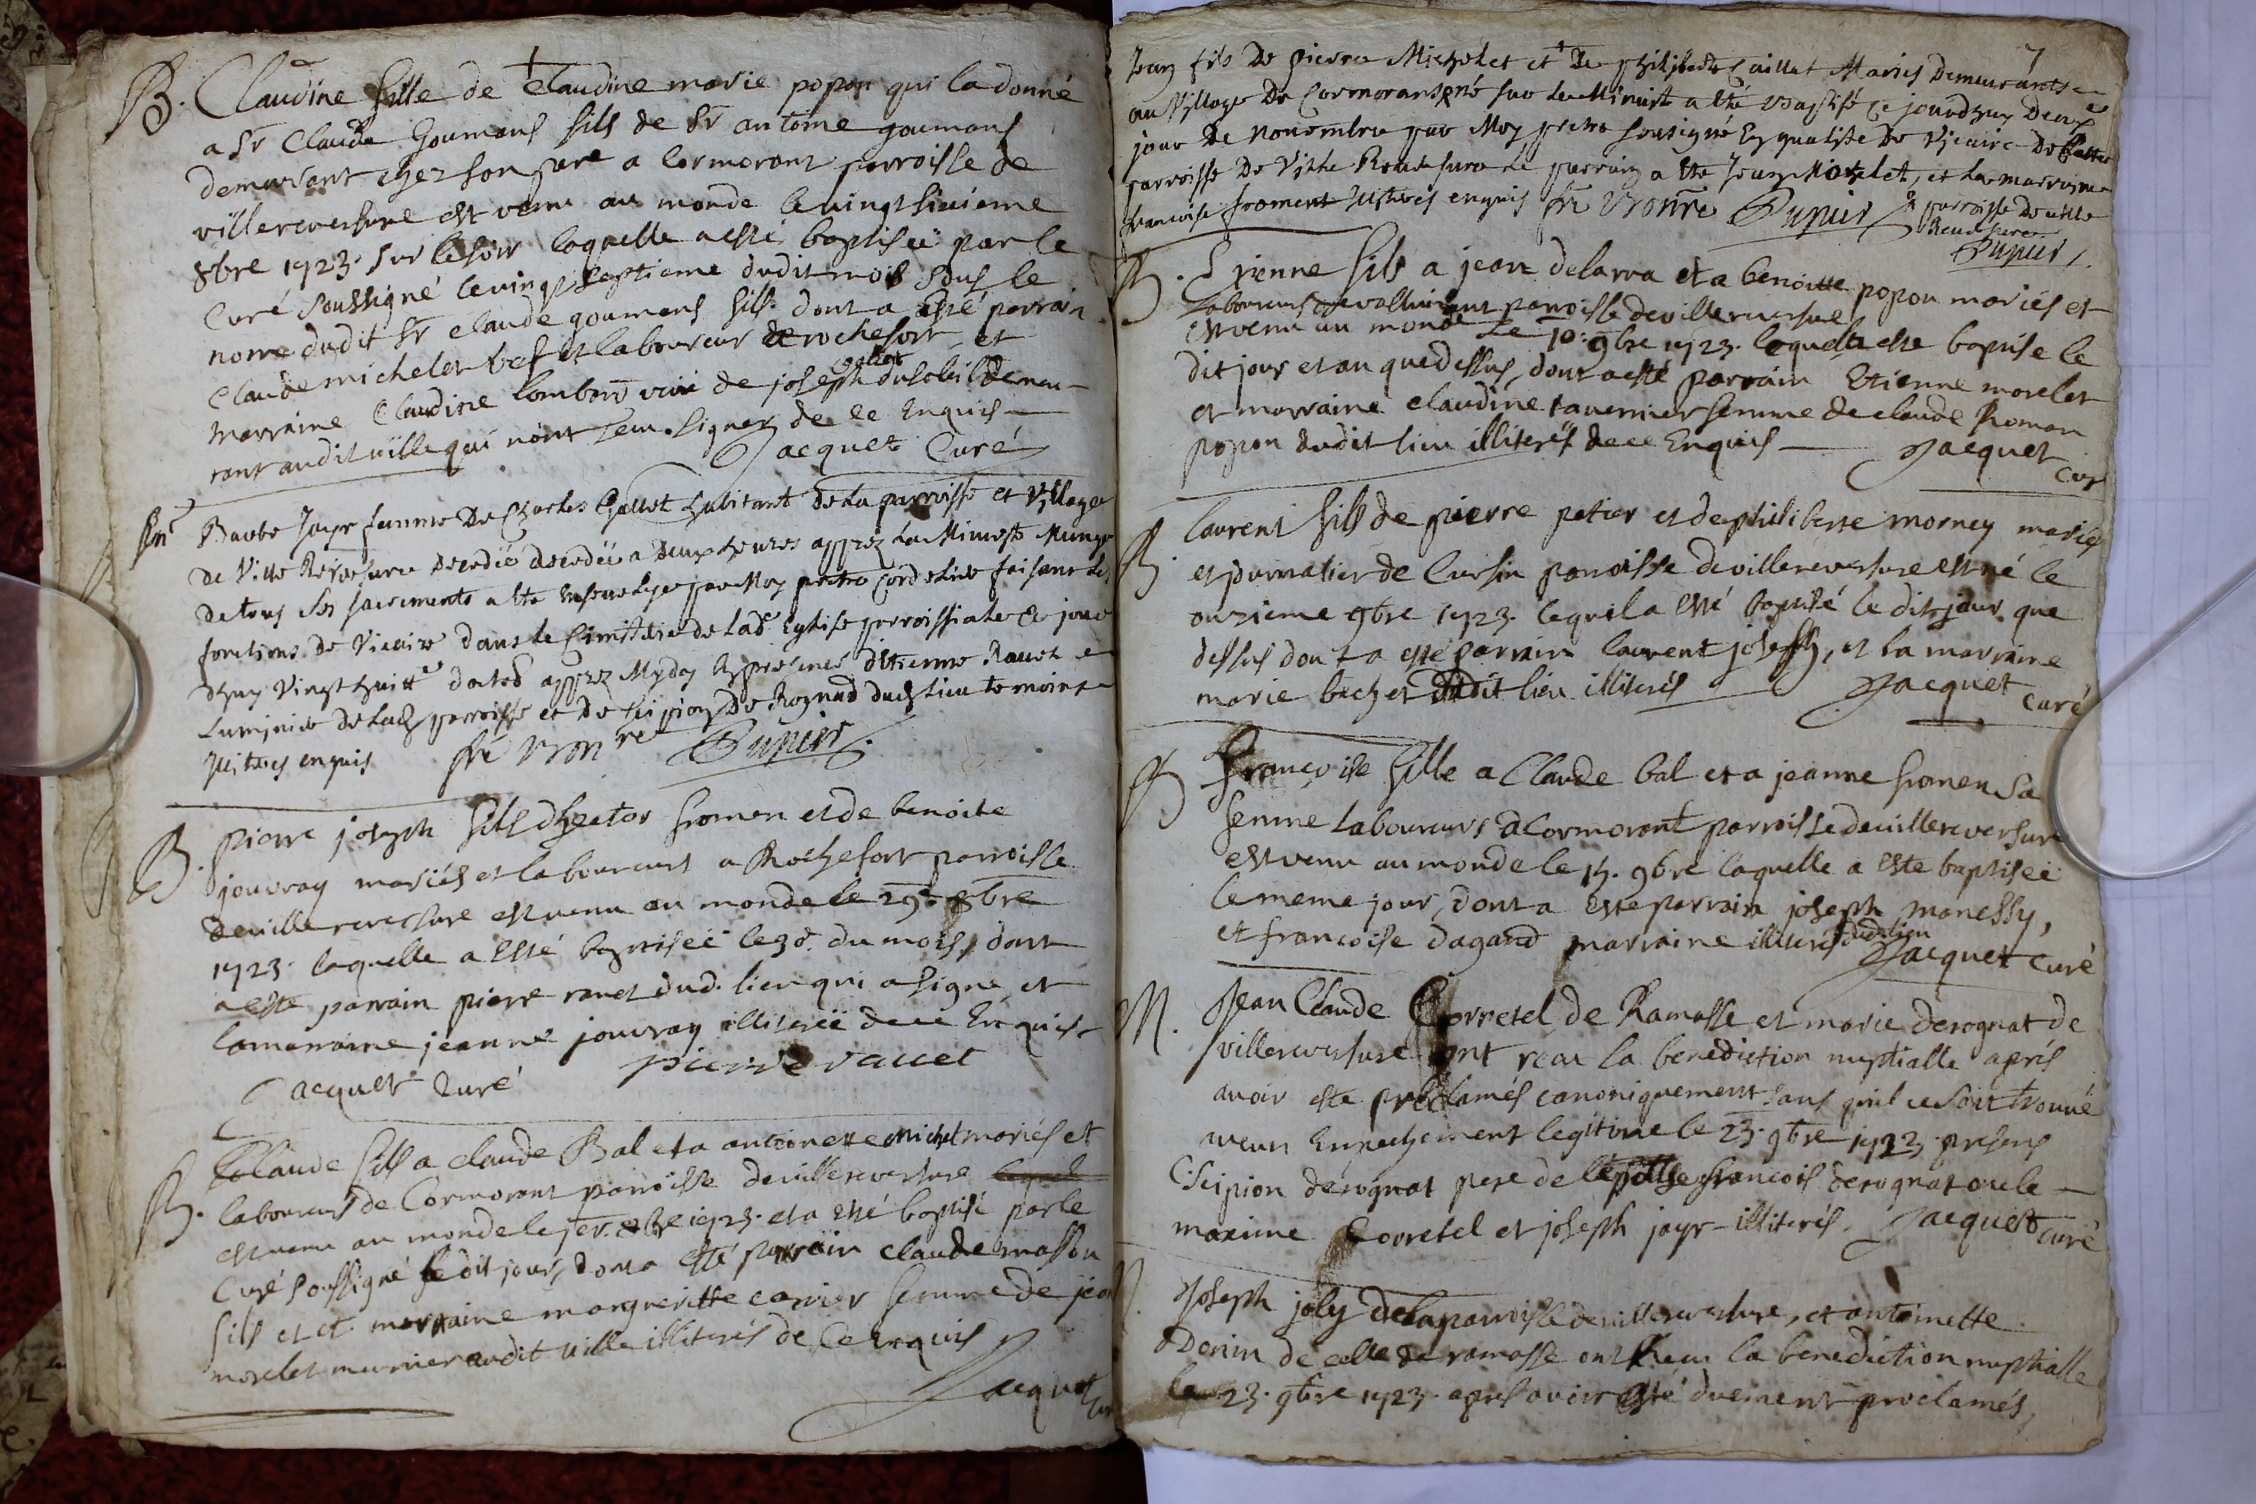 B. Claudine fille de Claudine marie popon qui la donné
a Sr Claude Goumans fils de Sr antoine goumans
demeurant chez son pere a Cormorant parroisse de
villereversure est venu au monde le vingt sixième
8bre 1723. sur le soir laquelle a esté baptiseë par le
Curé soussigné le vingt septieme dudit mois sous le
nom dudit Sr claude goumans fils. dont a esté parrain
Claude michelet vef et laboureur de rochefort, et
marraine Claudine lombard vive de joseph gallet dusoleil demeu-
rant audit ville qui n'ont sceu signer de ce Enquis
Jacquet Curé
Barbe Jayr femme De Charles Gallet habitant de la parroisse et Village
De Ville Reversure decedée a deux heures apprez La Minuist Munye
De tous ses sacrements a ete Ensevelye par Moy pretre Cordelier faisant les
fonctions De Vicaire Dans le Cimitiere de Lad Eglise parroissiale Ce jour
dhuy Vingt huitt d'octob apprez Mydy En presence d'Etienne Ravet
Luminier de Lad parroisse et De Scipion De Rognad dud Lieu temoins
Illiteres enquis fre Bonre Dupuis
B. pierre joseph fils d'hector fromen et de benoite
jouvray mariés et laboureurs a Rochefort parroisse
de villereversure est venu au monde le 29. 8bre
1723. laquelle a esté baptiseë le 30. du mois, dont
a esté parrain pierre ravet dud. lieu qui a signé et
la marraine jeanne jouvray illitereë de ce Enquise
Jacquet Curé pierre ravet
B. Claude fils a claude Bal et a antoinette michel mariés et
laboureurs de Cormorant parroisse de villereversure
est venu au monde le 1er. 9bre 1723. et a esté baptisé par le
Curé soussigné le dit jour, dont a esté parrain claude masson
fils et et marraine margueritte carrier femme de jean
morelet meunier audit ville illiterés de Ce enquis
Jacquet Cur
7
Jean fils De pierre Michelet et De philiberte Caillat Mariés Demeurants
au Village De Cormorant né sur Le Minuit a eté Baptisé Ce jourdhuy Deux
jour De Novembre par Moy pretre sousigné En qualité De Vicaire De
parroisse De Ville Reversure Le parrain a ete Jean Michelet, et La marraine
francoise froment Illiteres enquis fre Bonre Dupuis parroisse De ville
Reversure
Dupuis
B. Etienne fils a jean delarva et a benoitte popon mariés et
laboureurs parroisse de villereversure
est venu au monde Le 10. 9bre 1723. lequel a esté baptisé le
dit jour et an que dessus, dont a esté parrain Etienne morelet
et marraine claudine tavernier femme de claude Romon
popon dudit lieu illiterés de ce Enquis Jacquet
Cur
B laurent fils de pierre petier et de philiberte morney mariés
et journalier de Cursin parroisse de villereversure est né le
onzieme 9bre 1723. lequel a esté baptisé le dit jour que
dessus dont a esté parrain laurent joseph, et la marraine
marie bechet dudit lieu illiterés Jacquet curé
B Françoise fille a Claude bal et a jeanne fromen sa
femme Laboureurs a Cormorant parroisse de villereversure
est venu au monde le 15. 9bre laquelle a este baptisee
le meme jour, dont a Este parrain joseph monessy,
et francoise dagand marraine illiterés dud. lieu
Jacquet Curé
M. Jean Claude Corretel de Ramasse et marie derognat de
villereversure ont receu la benediction nuptialle aprés
avoir esté proclamés canoniquement sans qu'il ce soit trouvé
aucun Empechement legitime le 23. 9bre 1723 presens
Scipion derognat pere de l'epouse francois derognat oncle
maxime Corretel et joseph jayr illiterés. Jacquet curé
Joseph joly de la parroisse de villereversure, et antoinette
donin de celle de ramasse ont Receu la benediction nuptialle
le 23. 9bre 1723. apres avoir esté duement proclamés,